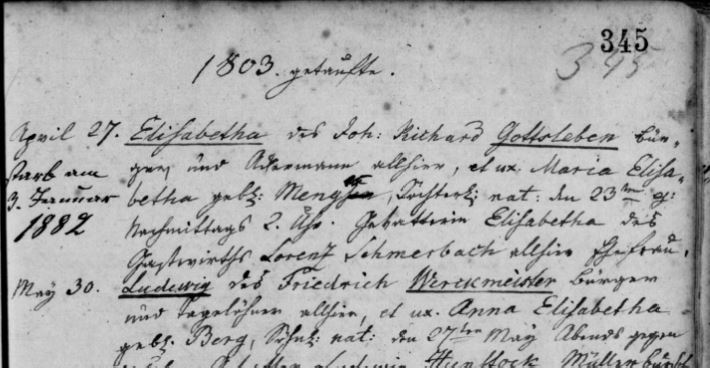 345
345
1803. getaufte.
April 27. Elisabetha des Joh: Richard Gottsleben bür-
starb am ger, und Ackermann allhier, et ux. Maria Elisa-
3. Januar betha geb: Meng, Töchterl: nat: den 23ten ej:
1882 Nachmittags 2. Uhr. Gevatterin Elisabetha des
Gastwirths Lorenz Schmerbach allhier Ehefrau.
May 30. Ludewig des Friedrich Werckmeister bürger
und Tagelöhner allhier, et ux. Anna Elisabetha
geb: Berg, Söhnl: nat: den 27ten May Abends gegen
Hunstock Müller bursch